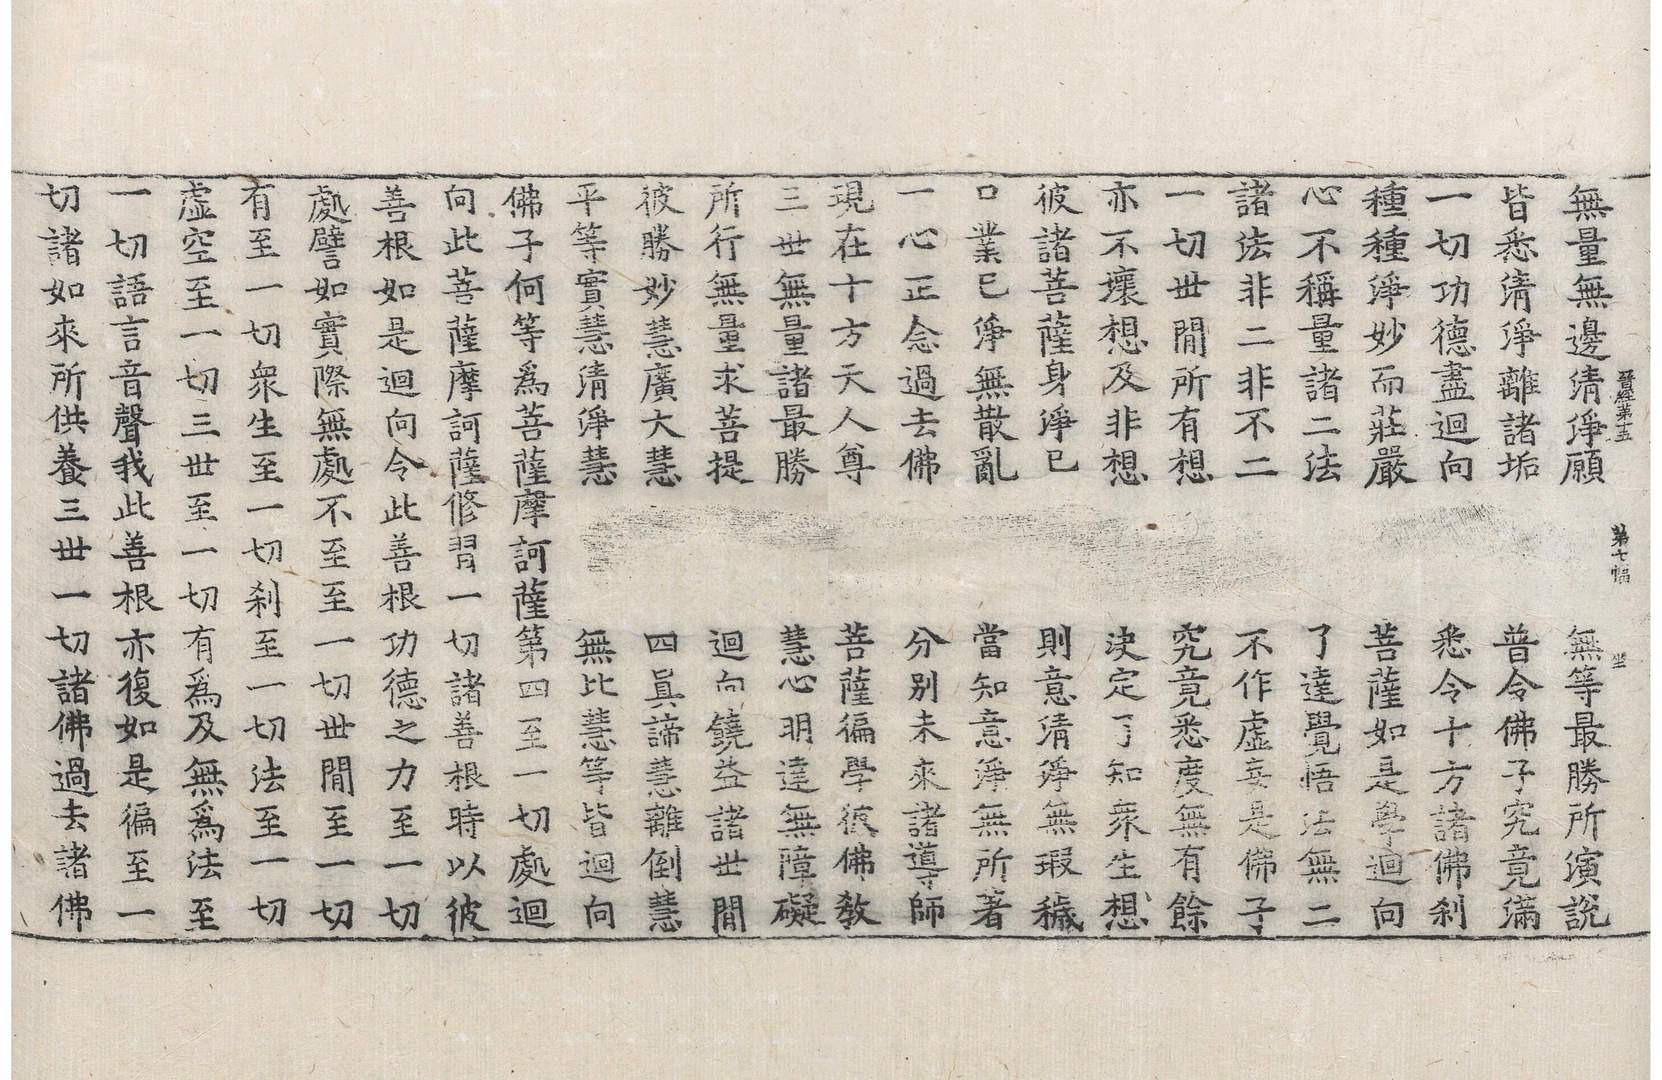 晉經第十五 第七幅 坐
無量無邊清淨願 無等最勝所演説
皆悉清淨離諸垢 普令佛子究竟滿
一切功德盡迴向 悉令十方諸佛刹
種種淨妙而莊嚴 菩薩如是學迴向
心不稱量諸二法 了達覺悟法無二
諸法非二非不二 不作虛妄是佛子
一切世間所有想 究竟悉度無有餘
亦不壞想及非想 决定了知衆生想
彼諸菩薩身淨已 則意清淨無瑕穢
口業已淨無散亂 當知意淨無所著
一心正念過去佛 分別未來諸導師
現在十方天人尊 菩薩徧學彼佛教
三世無量諸最勝 慧心明達無障礙
所行無量求菩提 迴向饒益諸世間
彼勝妙慧廣大慧 四眞諦慧離倒慧
平等實慧清淨慧 無比慧等皆迴向
佛子何等爲菩薩摩訶薩第四至一切處迴
向此菩薩摩訶薩修習一切諸善根時以彼
善根如是迴向令此善根功德之力至一切
處譬如實際無處不至至一切世間至一切
有至一切衆生至一切刹至一切法至一切
虛空至一切三世至一切有爲及無爲法至
一切語言音聲我此善根亦復如是徧至一
切諸如來所供養三世一切諸佛過去諸佛